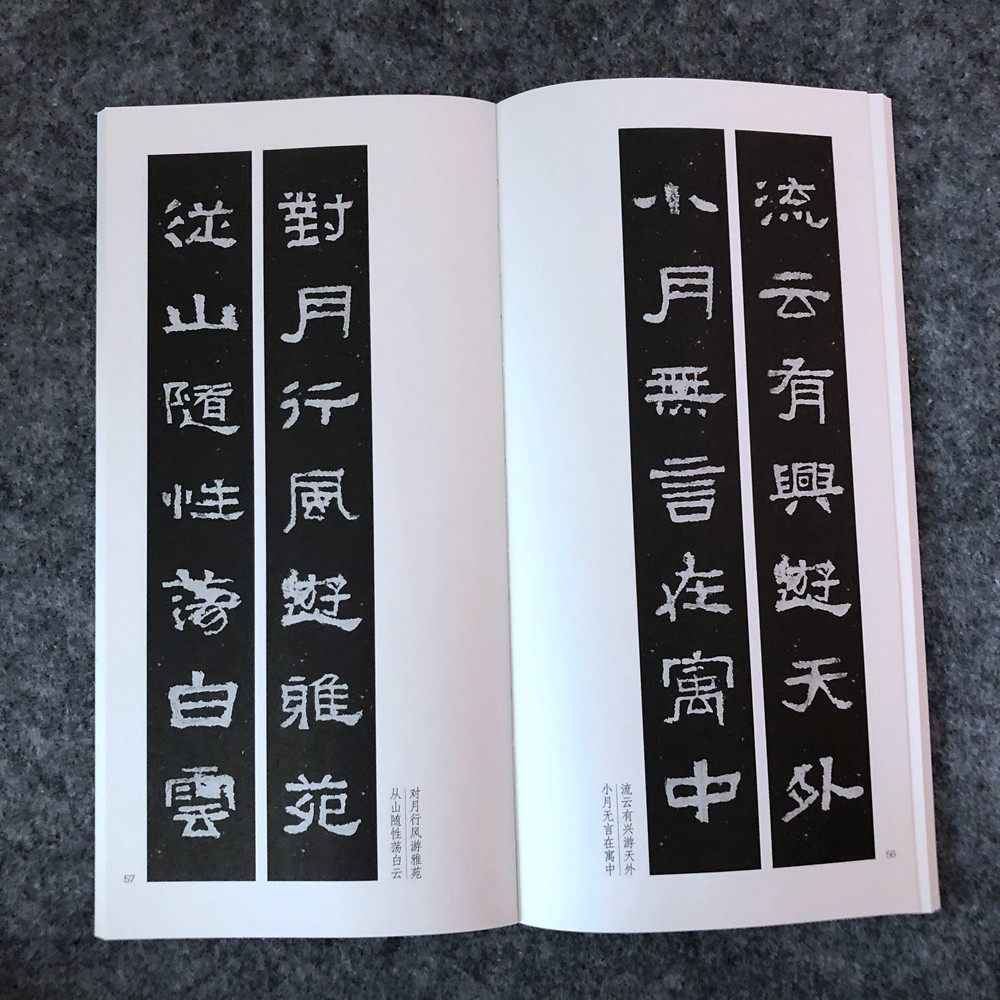 流云有興遊天外
小月無言在寓中
流云有兴游天外
小月无言在寓中
56
對月行風遊雅苑
從山隨性蕩白雲
对月行风游雅苑
从山随性荡白云
57